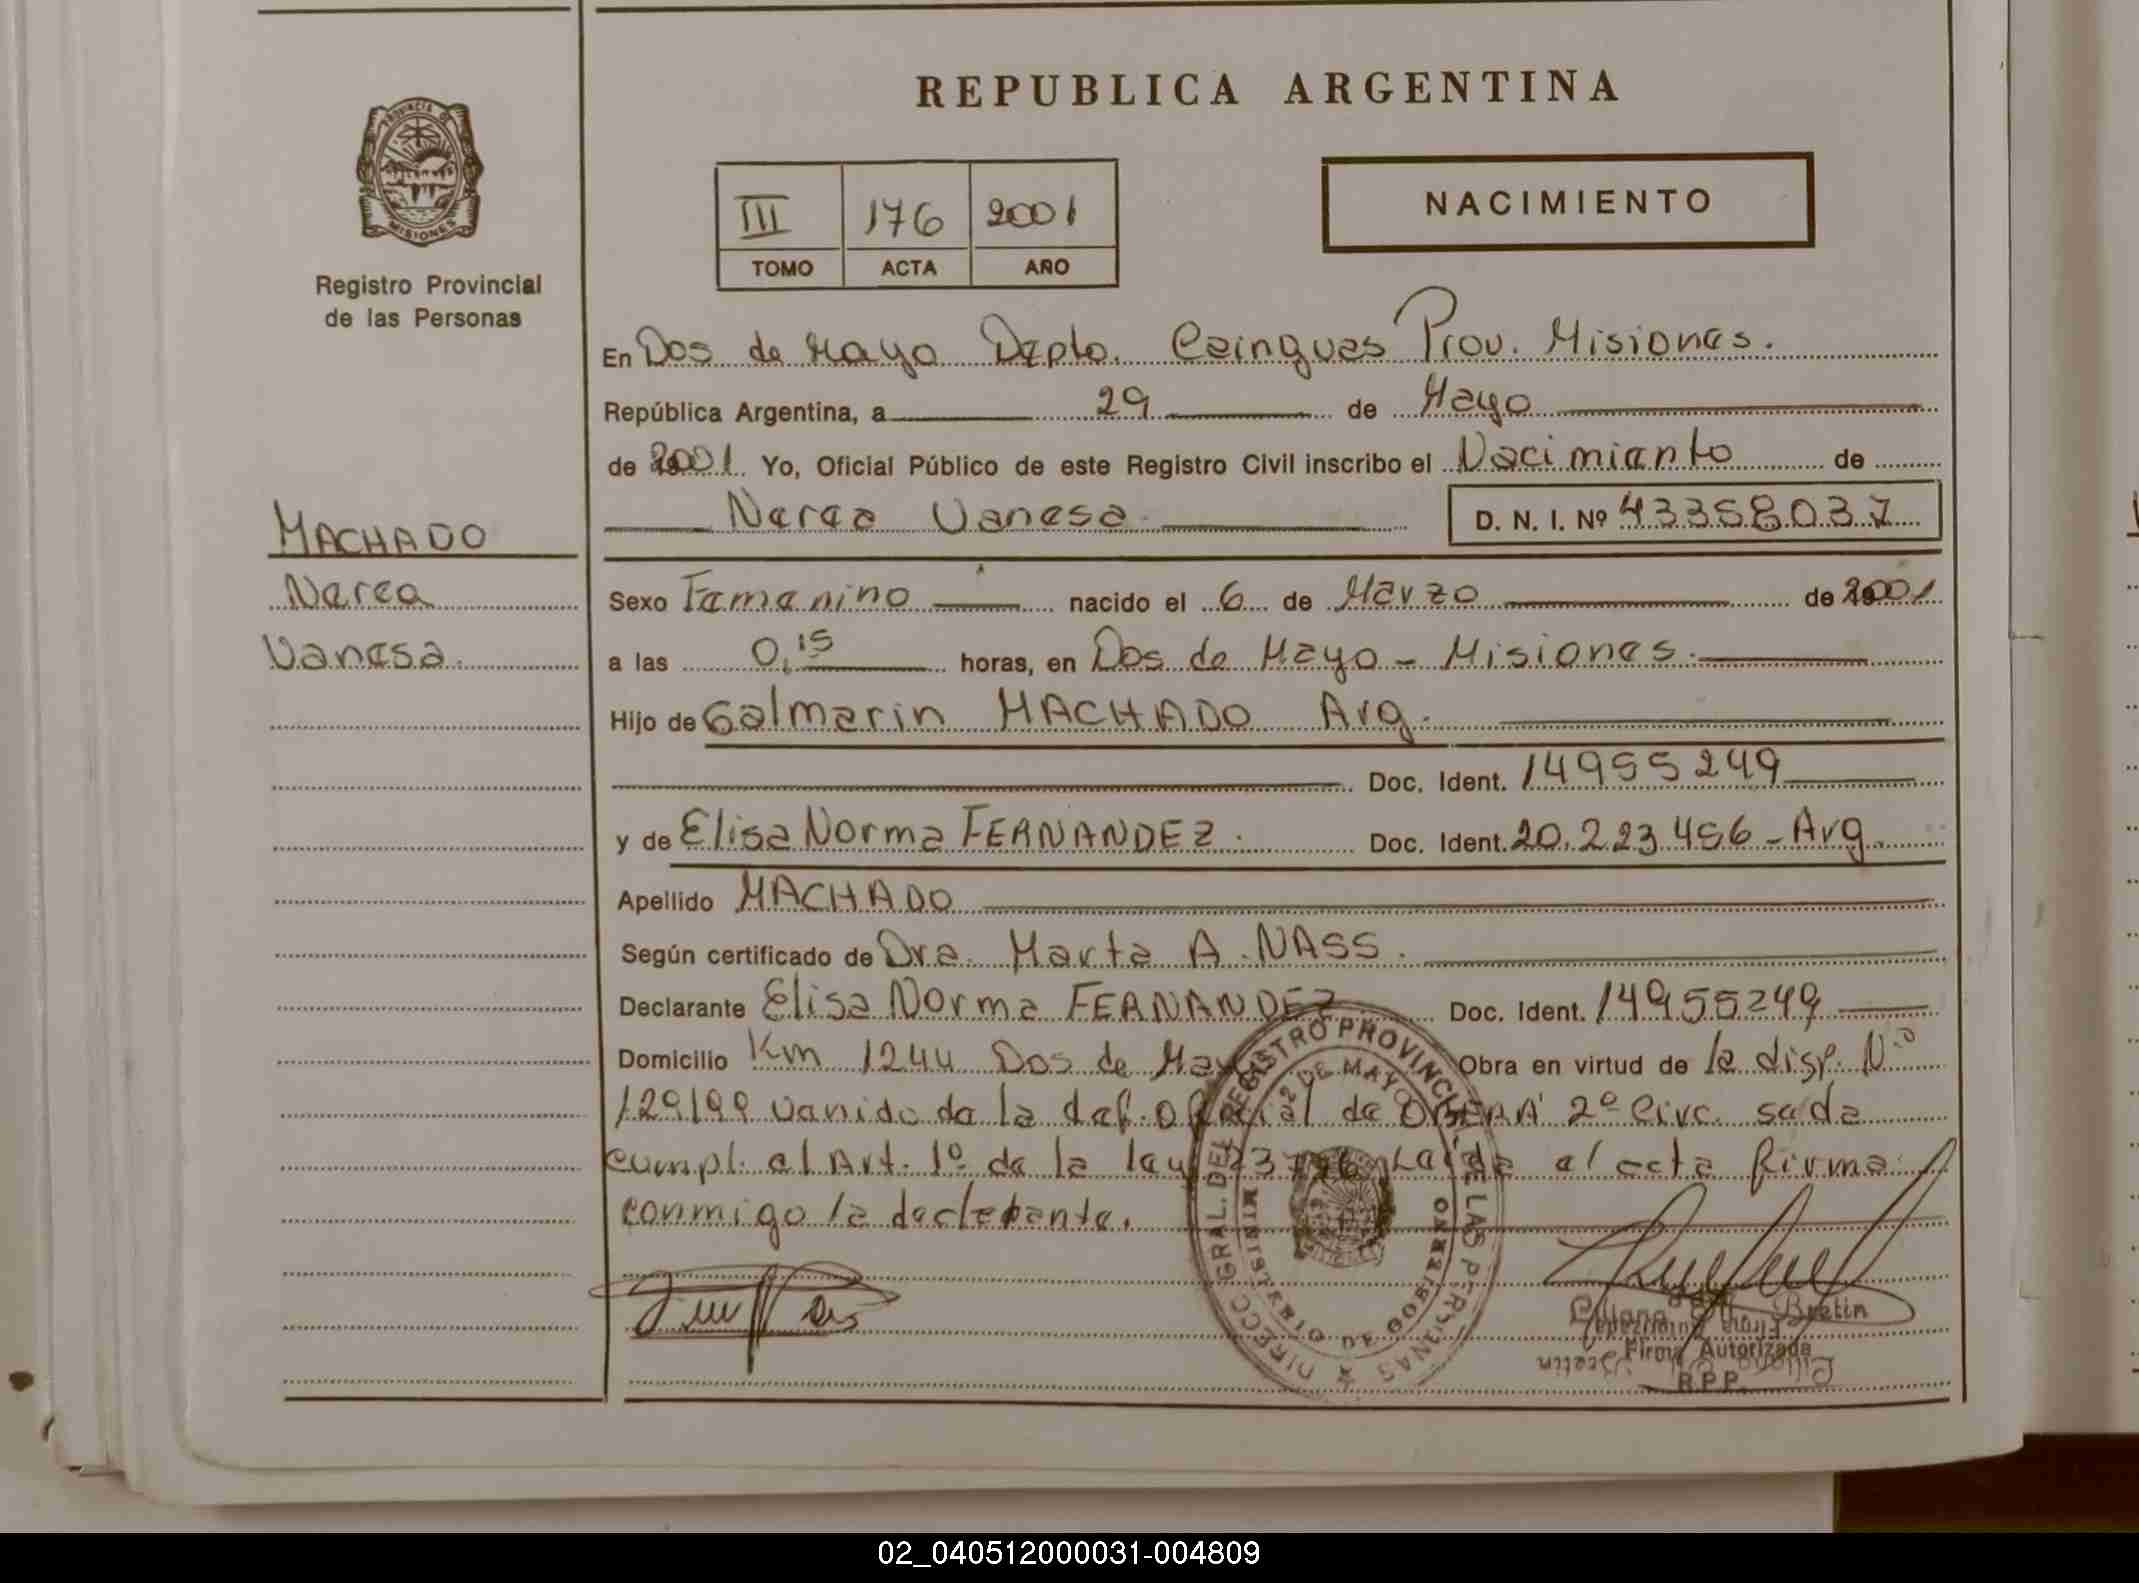 REPUBLICA ARGENTINA
PROVINCIA DE
MISIONES
Registro Provincial
de las Personas
III 176 2001
TOMO ACTA AÑO
NACIMIENTO
En Dos de Mayo Depto. Cainguas Prov. Misiones.
República Argentina, a 29 de Mayo
de 2001. Yo, Oficial Público de este Registro Civil inscribo el Nacimiento de
Nerea Vanesa D. N. I. Nº 43358037
MACHADO
Nerea
Vanesa.
Sexo Femenino nacido el 6 de Marzo de 2001
a las 0,15 horas, en Dos de Mayo - Misiones.
Hijo de Galmarin MACHADO Arg.
Doc. Ident. 14955249
y de Elisa Norma FERNANDEZ. Doc. Ident. 20.223.456 - Arg.
Apellido MACHADO
Según certificado de Dra. Marta A. NASS.
Declarante Elisa Norma FERNANDEZ Doc. Ident. 14955249
Domicilio Km 1244 Dos de Mayo Obra en virtud de la disp. Nº
129/99 venido de la def. Oficial de OBERA 2º Circ. se da
cumpl. al Art. 1º de la ley Leída el acta firma
conmigo la declarante.
DIRECC. GRAL. DEL REGISTRO PROVINCIAL DE LAS PERSONAS
2 DE MAYO
MINISTERIO DE GOBIERNO
Bretin
Firma Autorizada
R.P.P.
02_040512000031-004809